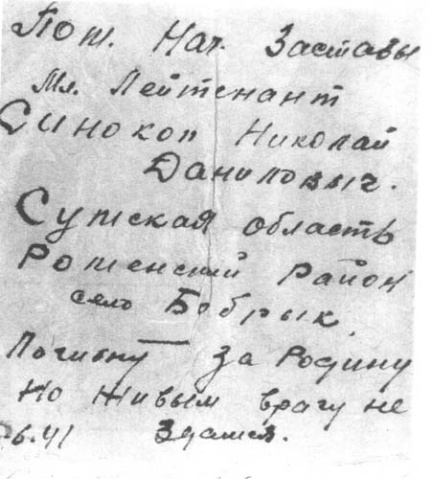 Пом. Нач. Заставы
Мл. Лейтенант
Синокоп Николай
Даниловыч.
Сумская область
Роменский Район
село Бобрык
Погибну за Родину
Но живым врагу не
6.41 Здамся.